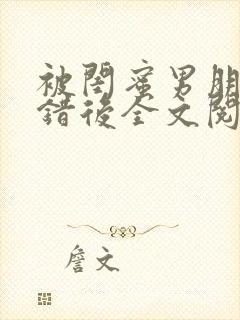 被閨蜜男朋
錯後全文閱
詹文